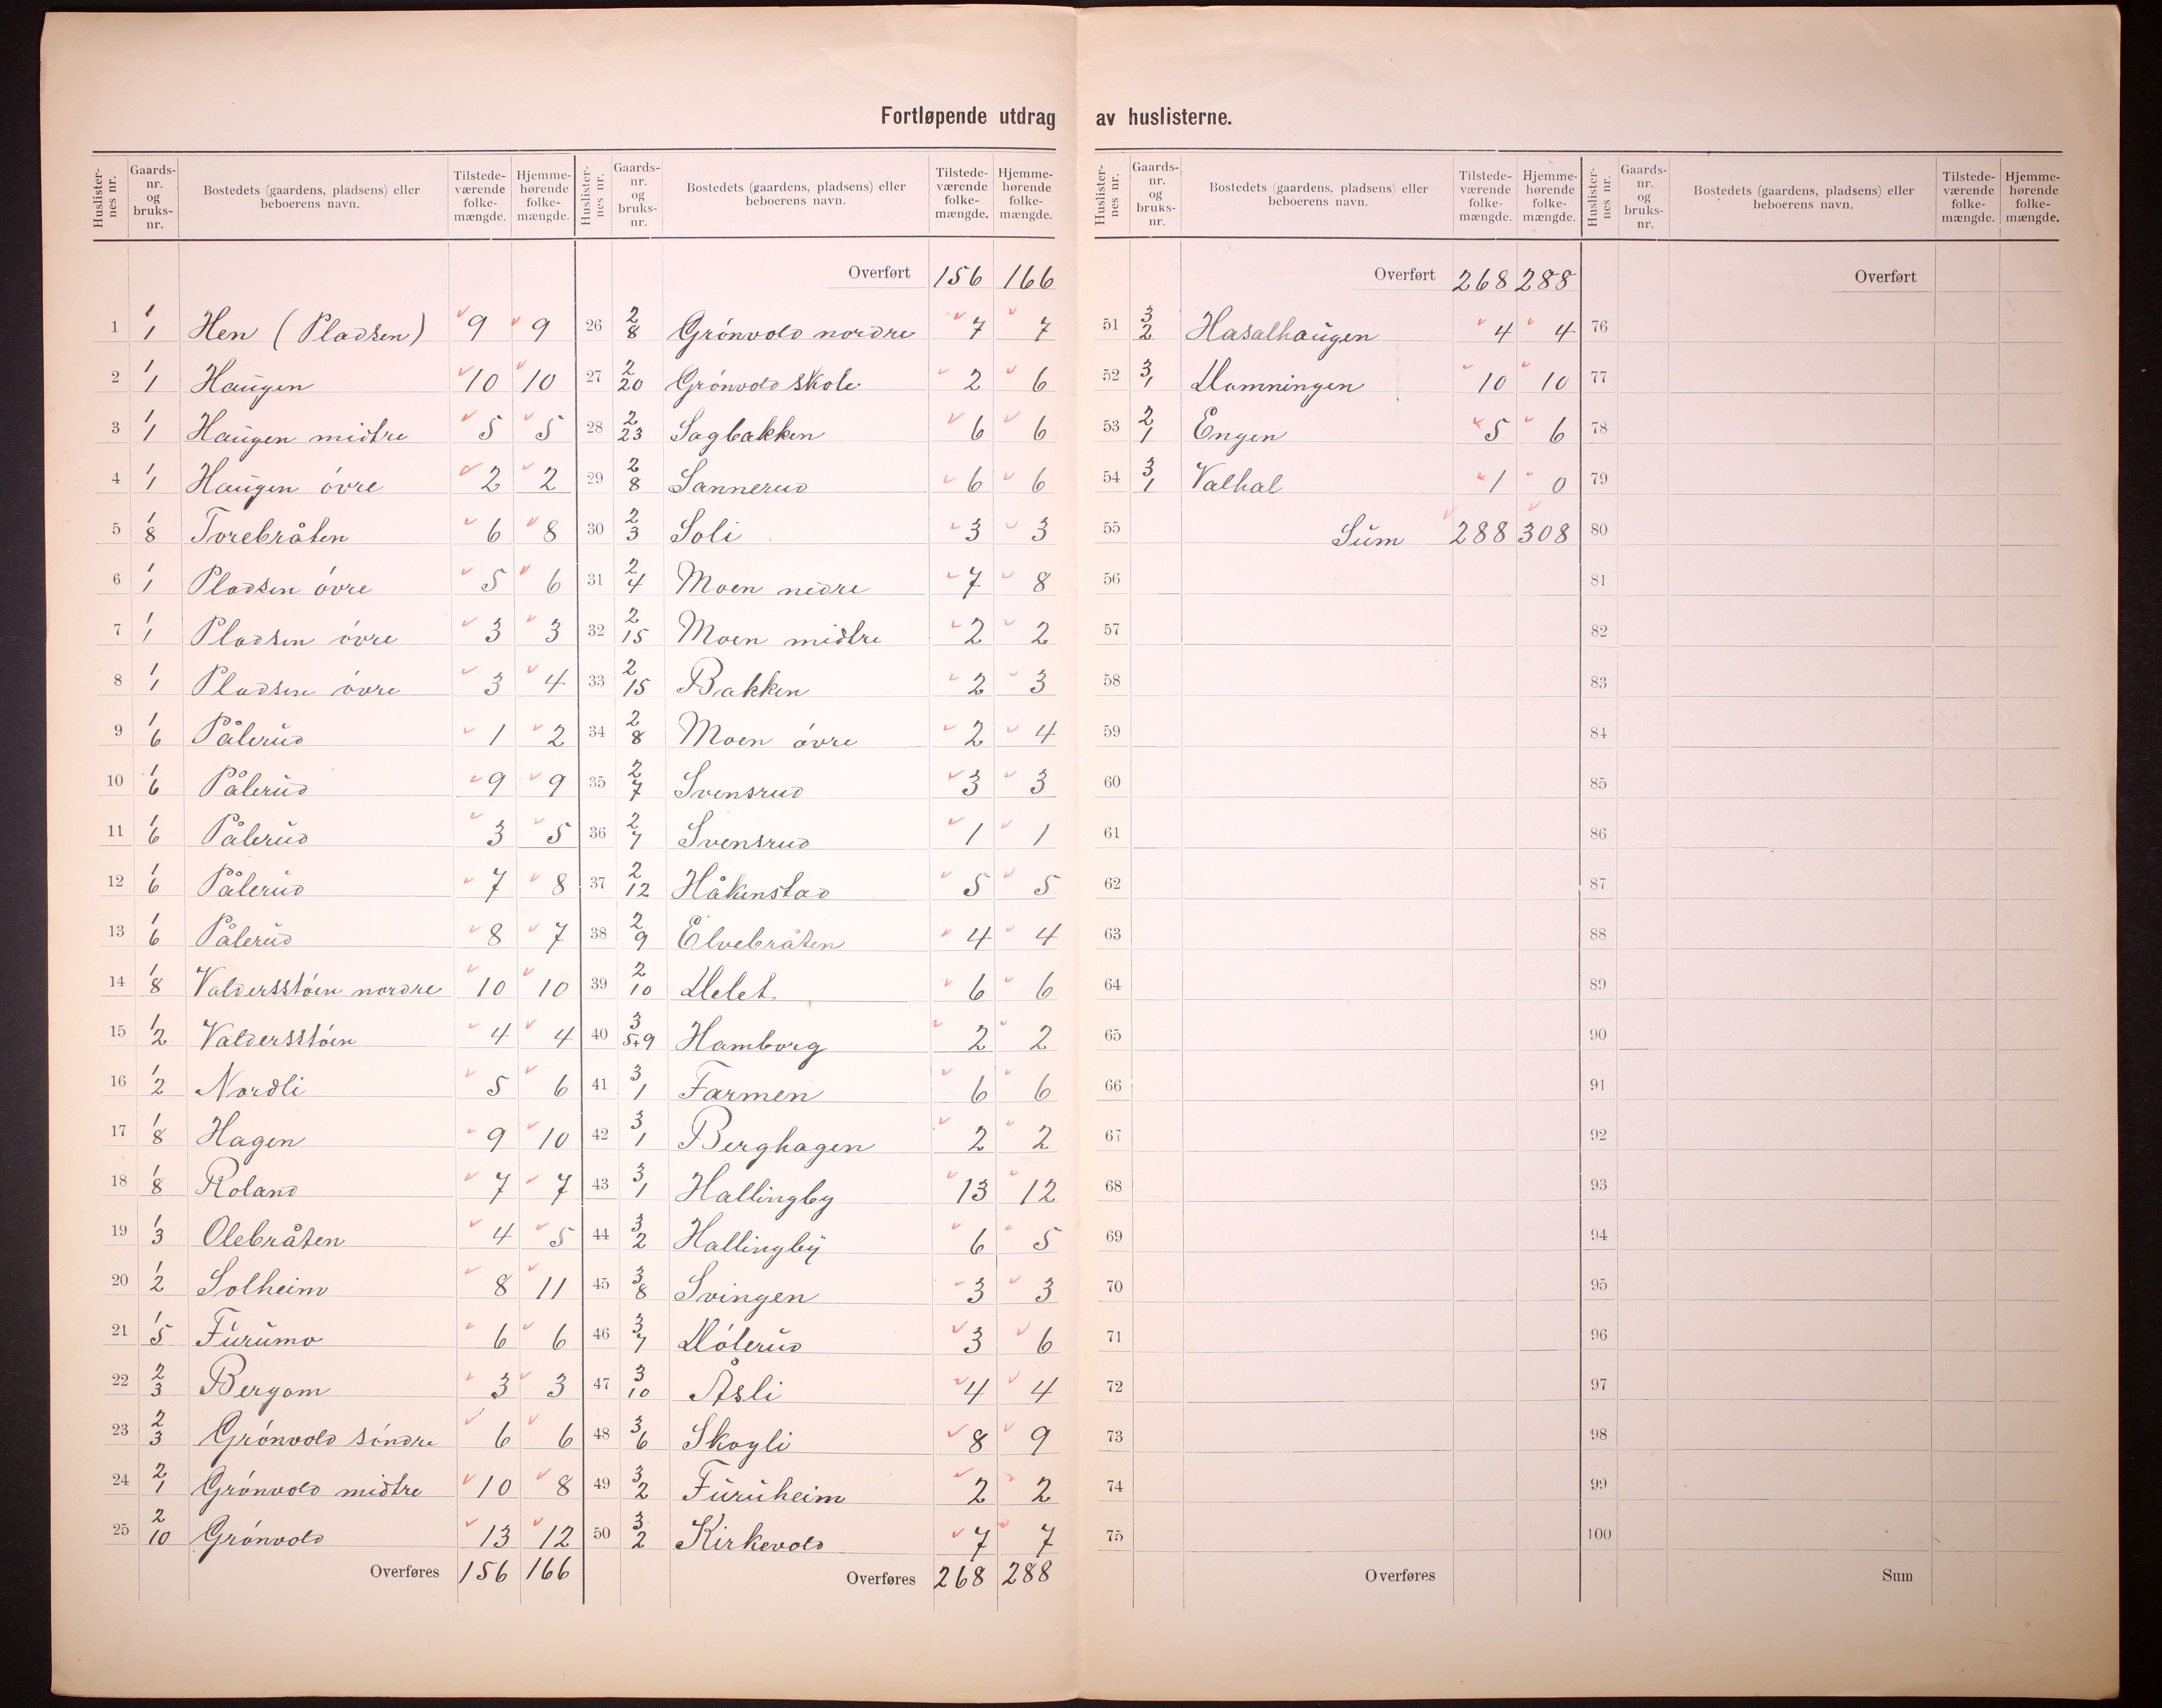 Fortløpende utdrag av huslisterne.
Huslister-nes nr. Gaards-nr. og bruks-nr. Bostedets (gaardens, pladsens) eller beboerens navn. Tilstede-værende folke-mængde. Hjemme-hørende folke-mængde.
1 1/1 Hen (Pladsen) 9 9
2 1/1 Haugen 10 10
3 1/1 Haugen midtre 5 5
4 1/1 Haugen övre 2 2
5 1/8 Torebråten 6 8
6 1/1 Pladsen övre 5 6
7 1/1 Pladsen övre 3 3
8 1/1 Pladsen övre 3 4
9 1/6 Pålerud 1 2
10 1/6 Pålerud 9 9
11 1/6 Pålerud 3 5
12 1/6 Pålerud 7 8
13 1/6 Pålerud 8 7
14 1/8 Valdersstöen nordre 10 10
15 1/2 Valdersstöen 4 4
16 1/2 Nordli 5 6
17 1/8 Hagen 9 10
18 1/8 Roland 7 7
19 1/3 Olebråten 4 5
20 1/2 Solheim 8 11
21 1/5 Furumo 6 6
22 2/3 Bergom 3 3
23 2/3 Grönvold söndre 6 6
24 2/1 Grönvold midtre 10 8
25 2/10 Grönvold 13 12
Overføres 156 166
Huslister-nes nr. Gaards-nr. og bruks-nr. Bostedets (gaardens, pladsens) eller beboerens navn. Tilstede-værende folke-mængde. Hjemme-hørende folke-mængde.
Overført 156 166
26 2/8 Grönvold nordre 7 7
27 2/20 Grönvold skole 2 6
28 2/23 Sagbakken 6 6
29 2/8 Sannerud 6 6
30 2/3 Soli 3 3
31 2/4 Moen nedre 7 8
32 2/15 Moen midtre 2 2
33 2/15 Bakken 2 3
34 2/8 Moen övre 2 4
35 2/7 Svensrud 3 3
36 2/7 Svensrud 1 1
37 2/12 Håkenstad 5 5
38 2/9 Elvebråten 4 4
39 2/10 6 6
40 3/5+9 Hamborg 2 2
41 3/1 Farmen 6 6
42 3/1 Berghagen 2 2
43 3/1 Hallingby 13 12
44 3/2 Hallingby 6 5
45 3/8 Svingen 3 3
46 3/7 3 6
47 3/10 Åsli 4 4
48 3/6 Skogli 8 9
49 3/2 Furuheim 2 2
50 3/2 Kirkevold 7 7
Overføres 268 288
Huslister-nes nr. Gaards-nr. og bruks-nr. Bostedets (gaardens, pladsens) eller beboerens navn. Tilstede-værende folke-mængde. Hjemme-hørende folke-mængde.
Overført 268 288
51 3/2 Hasalhaugen 4 4
52 3/1 10 10
53 2/1 Engen 5 6
54 3/1 Valhal 1 0
55 Sum 288 308
56
57
58
59
60
61
62
63
64
65
66
67
68
69
70
71
72
73
74
75
Overføres
Huslister-nes nr. Gaards-nr. og bruks-nr. Bostedets (gaardens, pladsens) eller beboerens navn. Tilstede-værende folke-mængde. Hjemme-hørende folke-mængde.
Overført
76
77
78
79
80
81
82
83
84
85
86
87
88
89
90
91
92
93
94
95
96
97
98
99
100
Sum